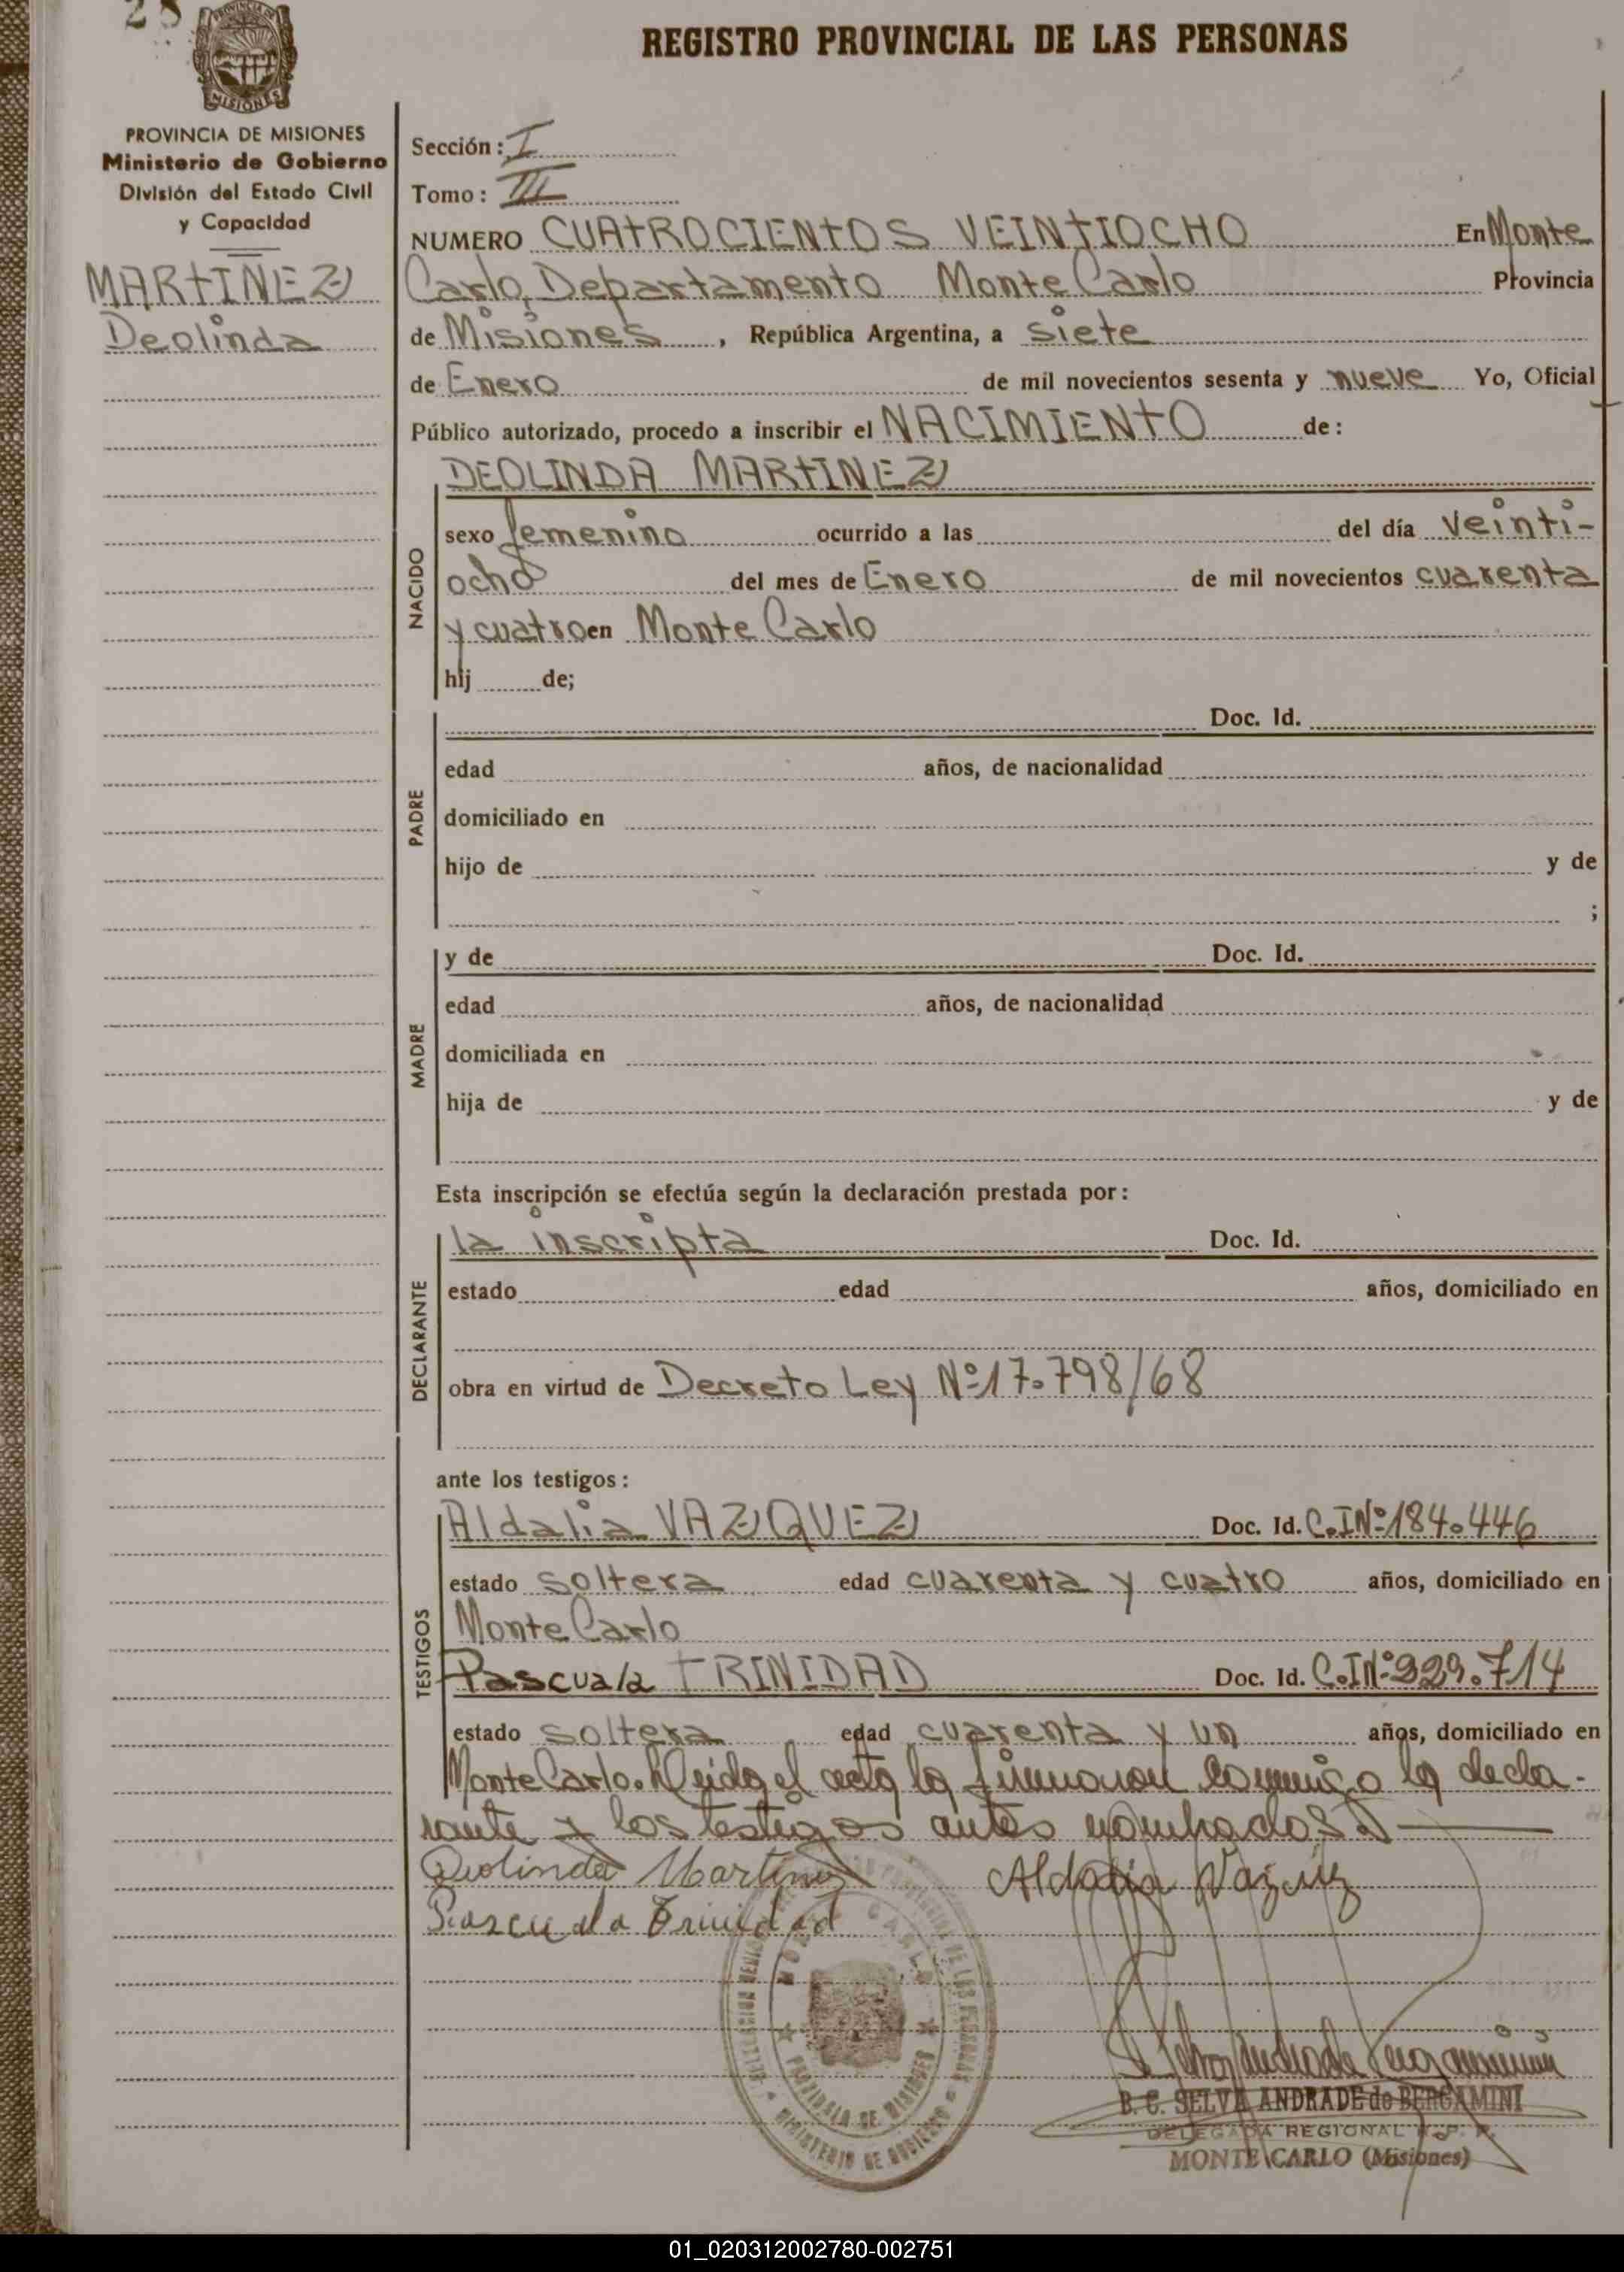 28
REGISTRO PROVINCIAL DE LAS PERSONAS
MISIONES
PROVINCIA DE MISIONES
Ministerio de Gobierno
División del Estado Civil
y Capacidad
MARTINEZ
Deolinda
Sección: I
Tomo: III
NUMERO CUATROCIENTOS VEINTIOCHO En Monte
Carlo, Departamento Monte Carlo Provincia
de Misiones, República Argentina, a siete
de Enero de mil novecientos sesenta y nueve Yo, Oficial
Público autorizado, procedo a inscribir el NACIMIENTO de:
NACIDO
DEOLINDA MARTINEZ
sexo femenino ocurrido a las del día veinti-
ocho del mes de Enero de mil novecientos cuarenta
y cuatro en Monte Carlo
hij de;
PADRE
Doc. Id.
edad años, de nacionalidad
domiciliado en
hijo de y de
;
MADRE
y de Doc. Id.
edad años, de nacionalidad
domiciliada en
hija de y de
Esta inscripción se efectúa según la declaración prestada por:
DECLARANTE
la inscripta Doc. Id.
estado edad años, domiciliado en
obra en virtud de Decreto Ley Nº 17.798/68
ante los testigos:
TESTIGOS
Aldalia VAZQUEZ Doc. Id. C.I Nº 184.446
estado soltera edad cuarenta y cuatro años, domiciliado en
Monte Carlo
Pascuala TRINIDAD Doc. Id. C.I Nº 929.714
estado soltera edad cuarenta y un años, domiciliado en
Monte Carlo. Leida el acta la firmaron conmigo la decla-
rante y los testigos antes nombrados.
Deolinda Martinez Aldalia Vazquez
Pascuala Trinidad
MONTE CARLO
PROVINCIA DE MISIONES
MINISTERIO DE GOBIERNO
S. Selva Andrade de Bergamini
B. C. SELVA ANDRADE de BERGAMINI
DELEGADA REGIONAL R. P. P.
MONTE CARLO (Misiones)
01_020312002780-002751